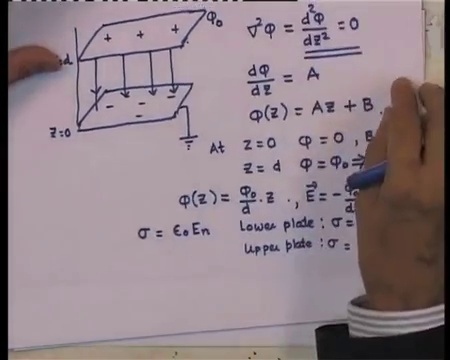 + + + φ₀
d
- - - -
z=0
∇²φ = d²φ/dz² = 0
dφ/dz = A
φ(z) = Az + B
At z=0 φ=0, B
z=d φ=φ₀ ⇒
φ(z) = φ₀/d · z , E⃗ = - φ₀/d
σ = ε₀En Lower plate : σ =
Upper plate : σ =